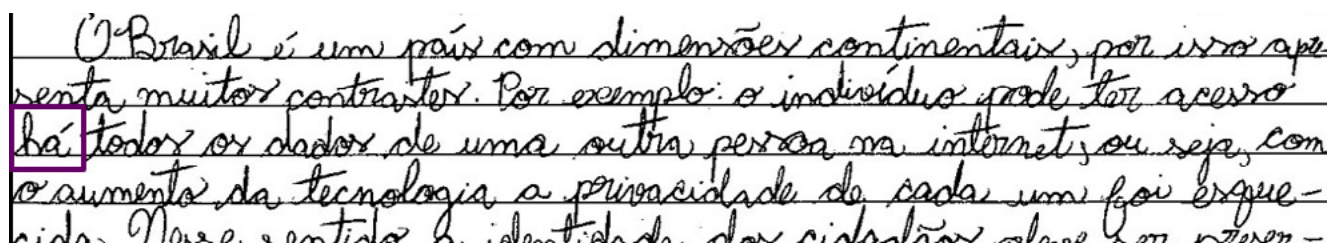 O Brasil é um país com dimensões continentais, por isso apre
senta muitos contrastes. Por exemplo: o indivíduo pode ter acesso
há todos os dados de uma outra pessoa na internet, ou seja, com
o aumento da tecnologia a privacidade de cada um foi esque-
cida. Nesse sentido a identidade dos cidadãos deve ser preser-